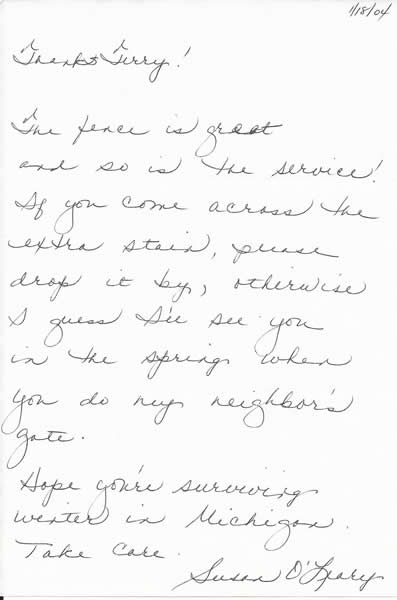 1/18/04
Thanks Terry!
The fence is great
and so is the service!
If you come across the
extra stain, please
drop it by, otherwise
I guess I'll see you
in the spring when
you do my neighbor's
gate.
Hope you're surviving
winter in Michigan.
Take care.
Susan O'Leary